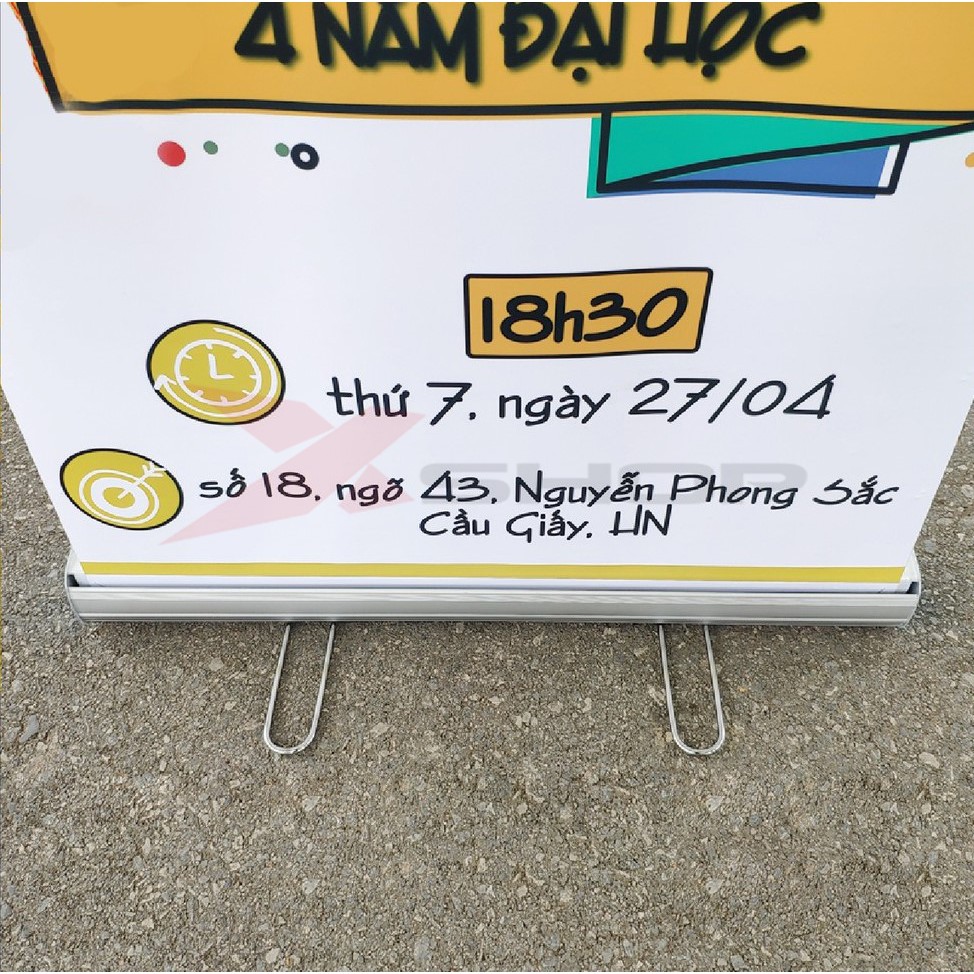 4 NĂM ĐẠI HỌC
18h30
thứ 7, ngày 27/04
số 18, ngõ 43, Nguyễn Phong Sắc
Cầu Giấy, HN
X SHOP